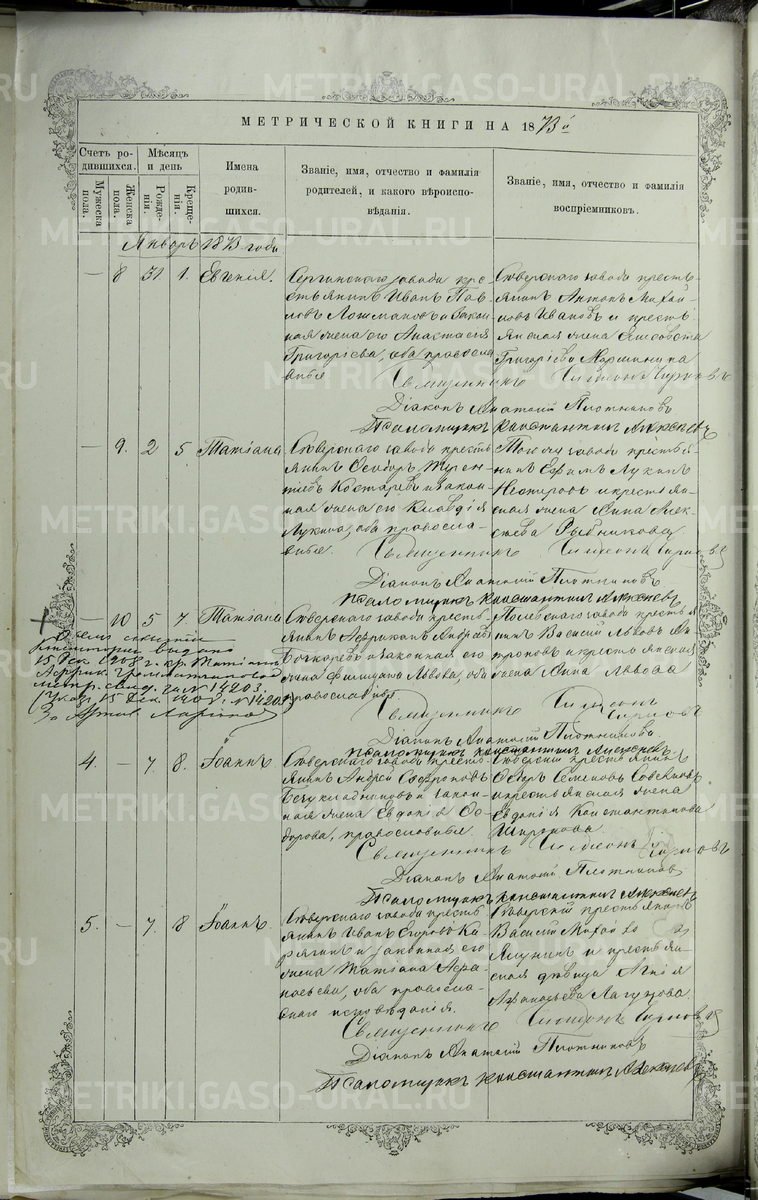 МЕТРИЧЕСКОЙ КНИГИ НА 1873й
Счетъ родившихся.
Мужеска пола.
Женска пола.
Мѣсяцъ и день
Рожденія.
Крещенія.
Имена родившихся.
Званіе, имя, отчество и фамилія
родителей, и какого вѣроиспо-
вѣданія.
Званіе, имя, отчество и фамилія
воспріемниковъ.
Январь 1873 года
— 8 31 1. Евгенія.
Сергинскаго завода кре-
стьянинъ Иванъ Пав-
ловъ Лошмановъ и закон-
ная жена его Анастасія
Григорьева, оба православ-
ные
Сѣверскаго завода кресть-
янинъ Антонъ Михай-
ловъ Ивановъ и кресть-
янская жена Елисавета
Григорьева
Священникъ
Діаконъ Анатолій Плотниковъ
Псаломщикъ Константинъ Алексѣевъ
— 9. 2 5 Татіана
Сѣверскаго завода кресть-
янинъ Ѳеодоръ Терен-
тьевъ Костаревъ и закон-
ная жена его Клавдія
Лукина, оба православ-
ные.
Того же завода крестья-
нинъ Ефимъ Лукинъ
Нестеровъ и крестьян-
ская жена Анна Алек-
сѣева Рыбникова
Священникъ
Діаконъ Анатолій Плотниковъ
Псаломщикъ Константинъ Алексѣевъ
— 10 5 7. Татіана
Сѣверскаго завода кресть-
янинъ Африканъ Андреевъ
Бочкаревъ и законная его
жена Фелицата Львова, оба
православные
Полевскаго завода крестья-
нинъ Василій Львовъ
и крестьянская
жена Анна Львова
Священникъ Симеонъ
Діаконъ Анатолій Плотниковъ
Псаломщикъ Константинъ Алексѣевъ
выдано
15 Дек 1908 г. кр. Татіанѣ
Африк.
за № 14203.
(Указ. 15 Дек. 1908 г. № 14203)
4. — 7. 8. Іоаннъ
Сѣверскаго завода кресть-
янинъ Андрей Софроновъ
и закон-
ная жена Евдокія Ѳе-
дорова, православные.
Сѣверскій крестьянинъ
Ѳедоръ Семеновъ
и крестьянская жена
Евдокія Константинова
Священникъ Симеонъ
Діаконъ Анатолій Плотниковъ
Псаломщикъ Константинъ Алексѣевъ
5. — 7. 8 Іоаннъ.
Сѣверскаго завода кресть-
янинъ Иванъ Егоровъ Ка-
рягинъ и законная его
жена Татіана Аѳа-
насьева, оба православ-
наго исповѣданія.
Сѣверскій крестьянинъ
Василій
и крестьян-
ская дѣвица Агнія
Афанасьева Лагунова.
Священникъ Симеонъ
Діаконъ Анатолій Плотниковъ
Псаломщикъ Константинъ Алексѣевъ
METRIKI.GASO-URAL.RU